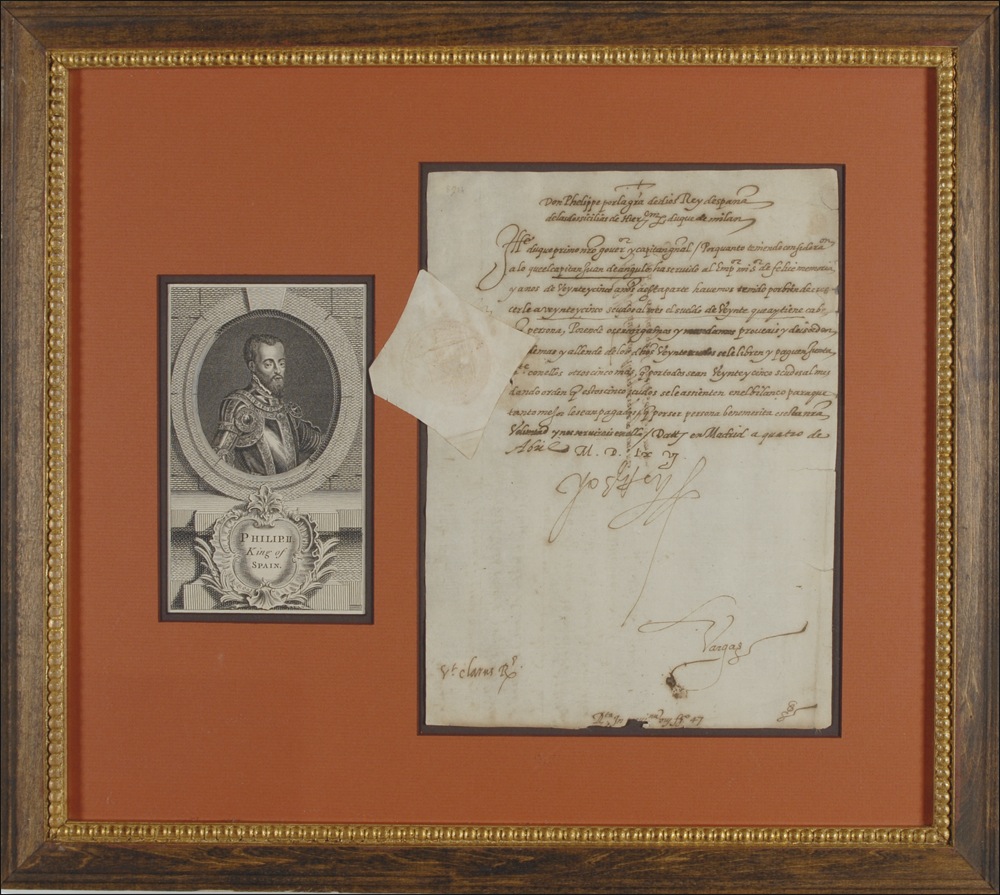 PHILIP. II.
King of
SPAIN.
Don Phelippe por la gra de dios Rey despaña
delas dos sicilias de Hierlm &, duque de milan
duque primo nro gouer.or y capitan gnal / Porquanto teniendo considera on
a lo que el capitan Juan de angulo ha seruido al Emp.or mi s.r de felice memoria
y a nos de Veynte y cinco años a esta parte hauemos tenido por bien de
a veynte y cinco scudos al mes el sueldo de Veynte que ay tiene
persona, Por ende os encargamos y mandamos proueais y deis orden
demas y allende de los dhos Veynte scudos se le libren y paguen
con ellos otros cinco mas, q por todos sean Veynte y cinco scudos al mes
dando orden q estos cinco scudos se le assienten en el bilanco para que
tanto mejor le sean pagados, q por ser persona benemerita es esta nra
Voluntad y nro seruicio en ello / Datt en Madrid a quatro de
Abril M. D. Lx vj
yo el Rey
Vargas
V.t Clarus R.s
47